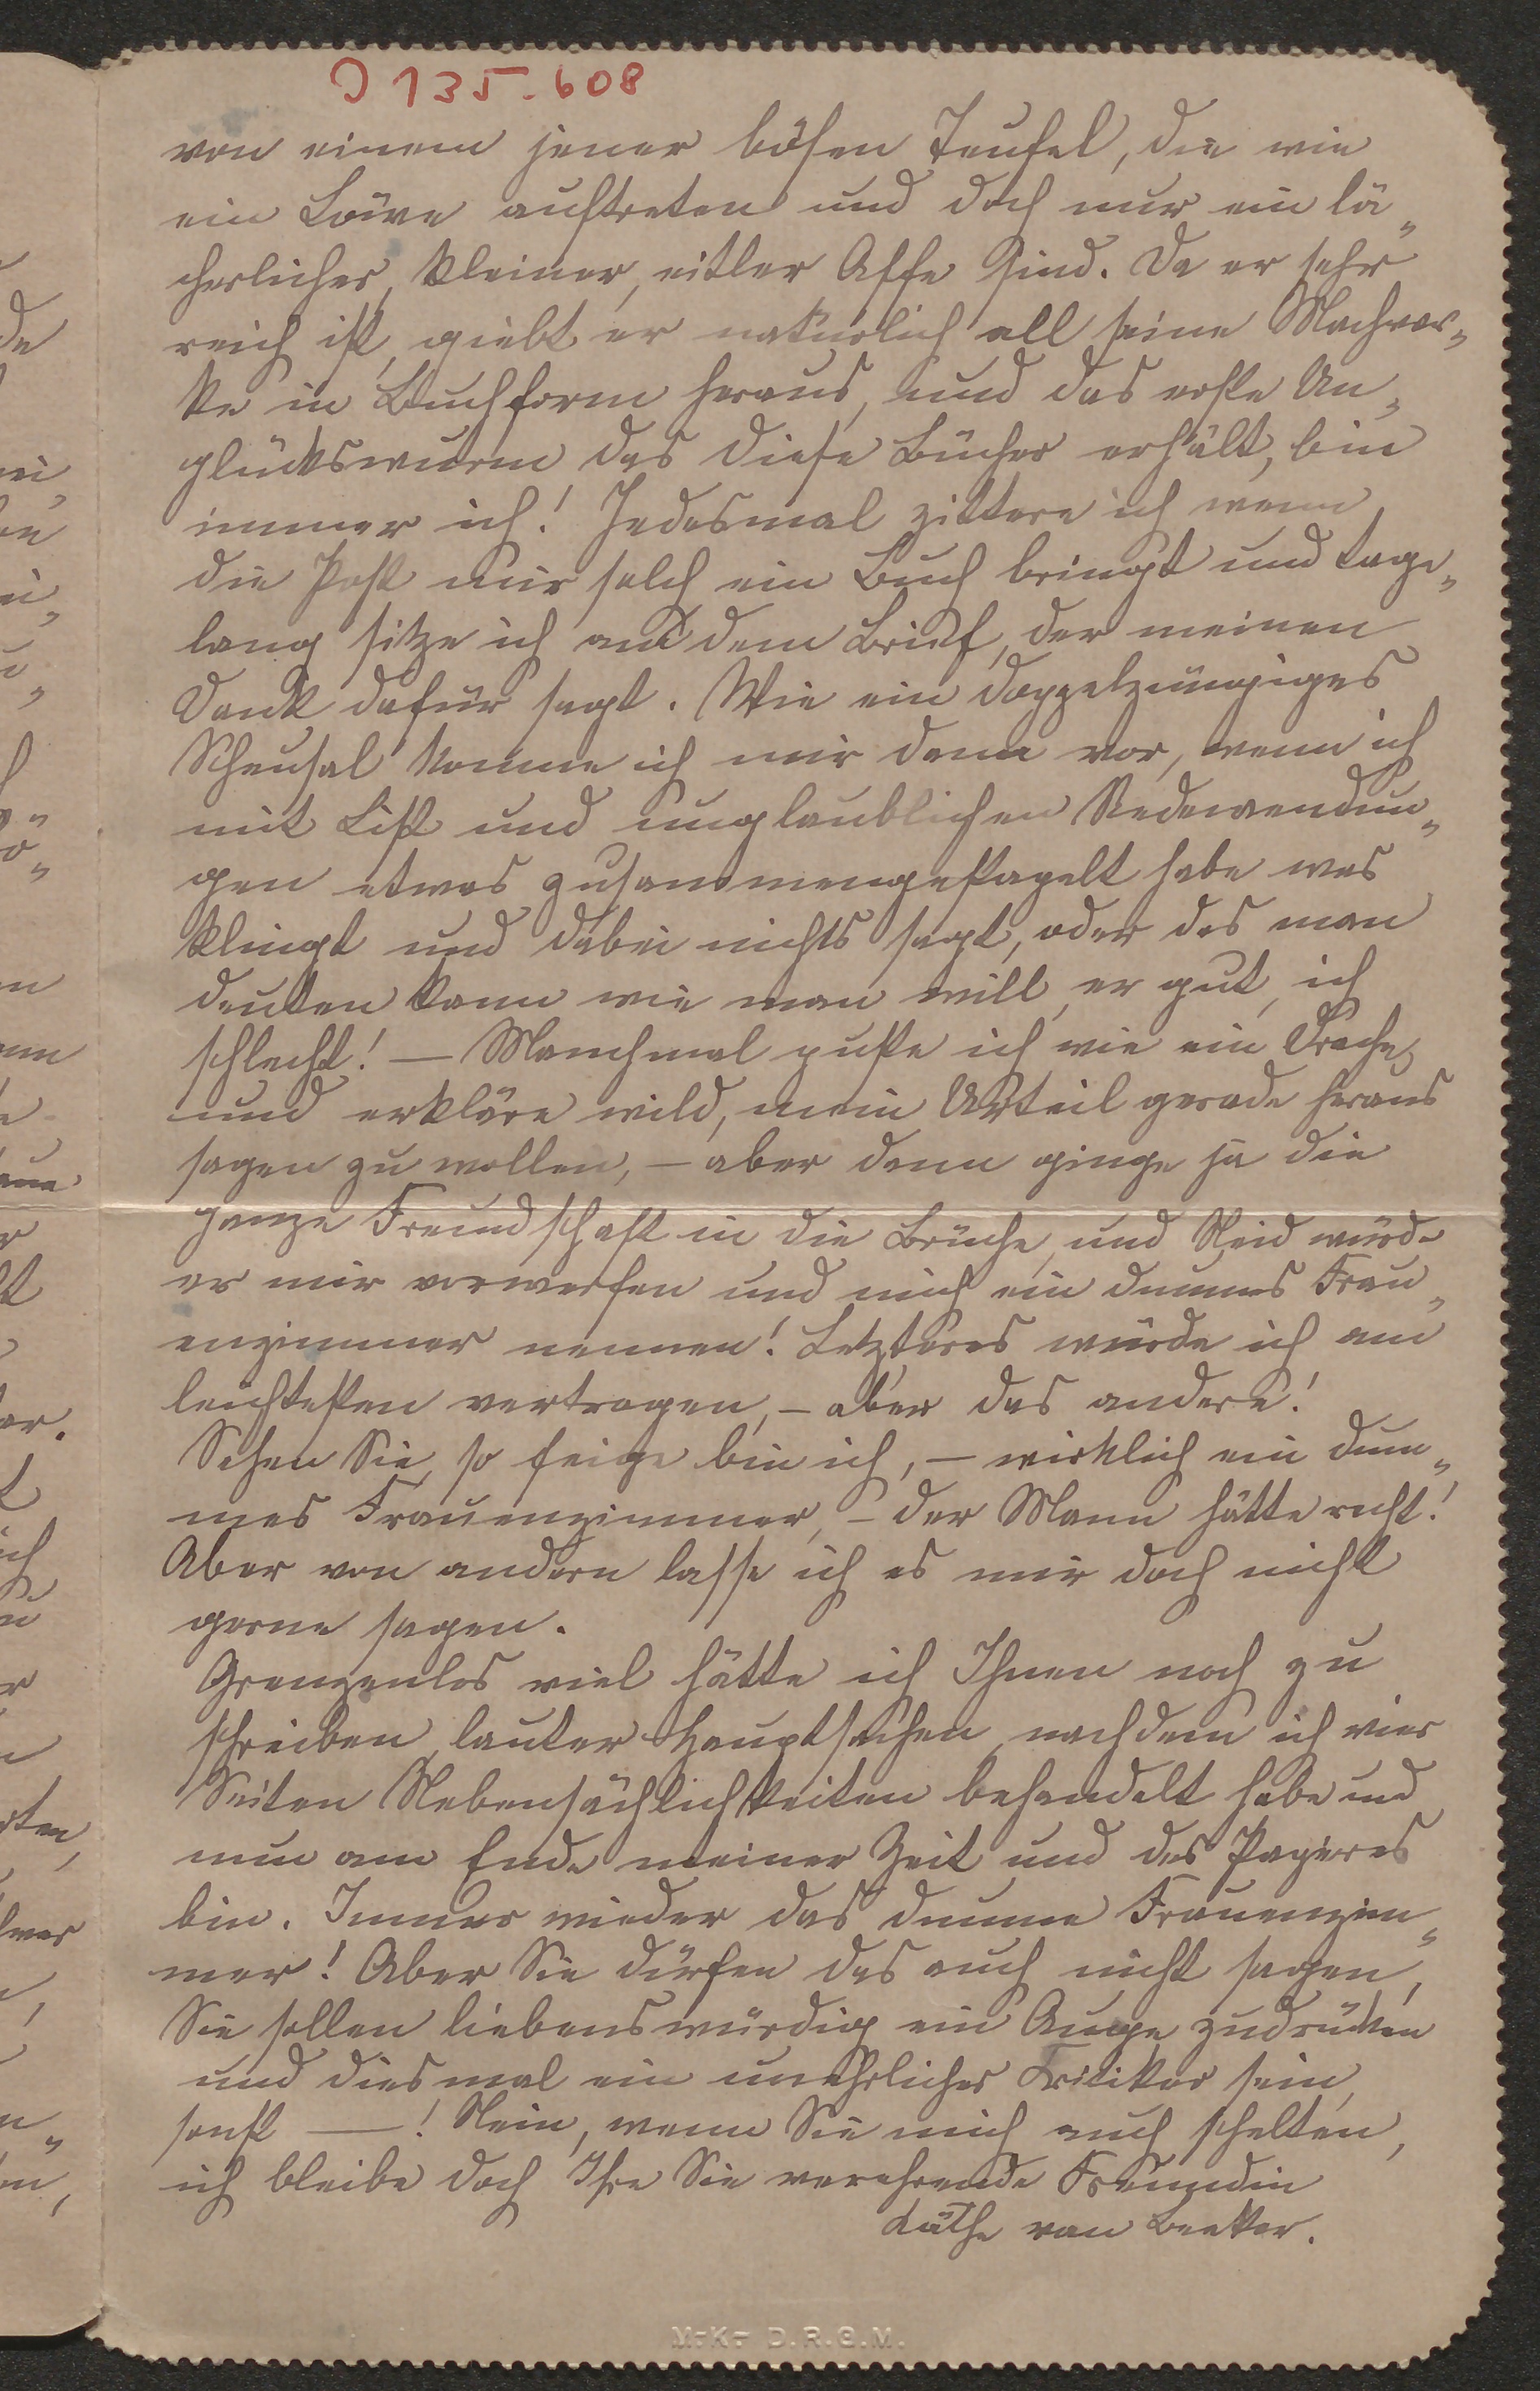 J 135.608
von einem jener bösen Teufel, die wie
ein Löwe auftreten und doch nur ein lä„
cherlicher, kleiner, eitler Affe sind. Da er sehr
reich ist, giebt er natürlich all seine Machwer„
ke in Buchform heraus, und das erste Un„
glückswurm das diese Bücher erhält, bin
immer ich! Jedesmal zittere ich wenn
die Post mir solch ein Buch bringt und tage„
lang sitze ich an dem Brief, der meinen
Dank dafür sagt. Wie ein doppelzüngiges
Scheusal komme ich mir dann vor, wenn ich
mit List und unglaublichen Redewendun„
gen etwas zusammengestapelt habe was
klingt und dabei nichts sagt, oder das man
deuten kann wie man will, er gut, ich
schlecht! — Manchmal puste ich wie ein Drache,
und erkläre wild, mein Urteil gerade heraus
sagen zu wollen, — aber dann ginge ja die
ganze Freundschaft in die Brüche, und Neid würde
er mir vorwerfen und mich ein dummes Frau„
enzimmer nennen! Letzteres würde ich am
leichtesten vertragen, – aber das andere!
Sehen Sie, so feige bin ich, — wirklich ein dum„
mes Frauenzimmer, – der Mann hätte recht!
Aber von andern lasse ich es mir doch nicht
gerne sagen.
Grenzenlos viel hätte ich Ihnen noch zu
schreiben, lauter Hauptsachen, nachdem ich vier
Seiten Nebensächlichkeiten behandelt habe und
nun am Ende meiner Zeit und des Papieres
bin. Immer wieder das dumme Frauenzim„
mer! Aber Sie dürfen das auch nicht sagen,
Sie sollen liebenswürdig ein Auge zudrücken
und diesmal ein unehrlicher Kritiker sein,
sonst —! Nein, wenn Sie mich auch schelten,
ich bleibe doch Ihre Sie verehrende Freundin
Käthe van Beeker.
M-K- D.R.G.M.